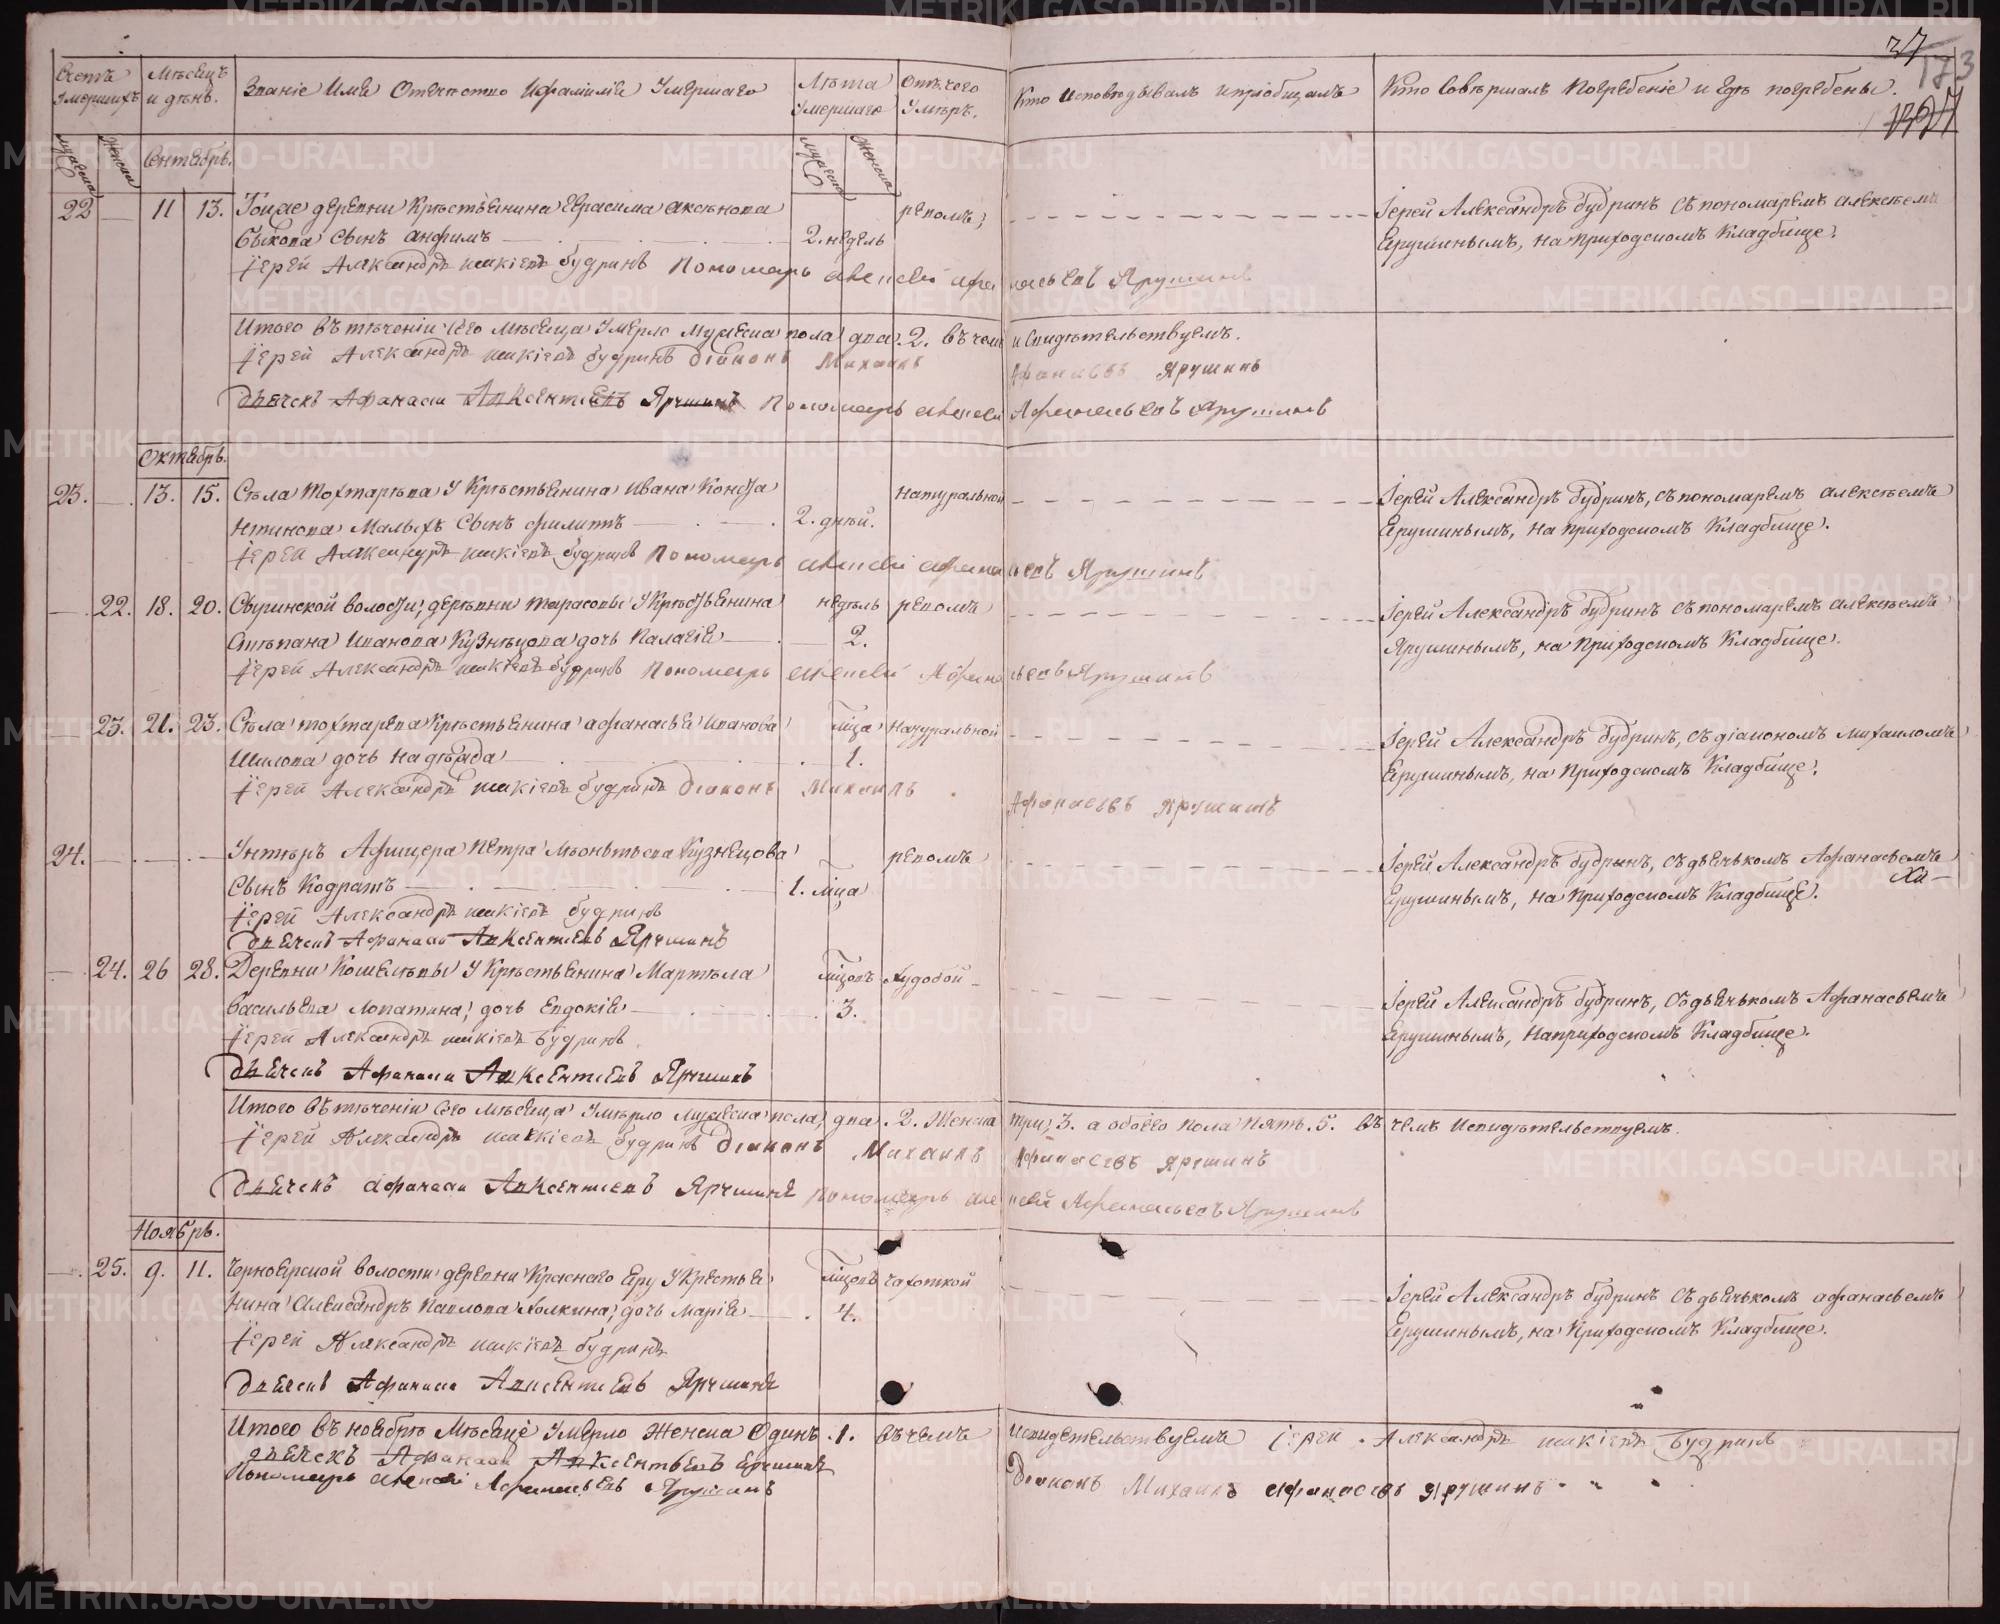 27
173
Счетъ умершихъ
Мѣсяцъ и день.
Званіе Имя Отечество и фамилія Умершаго
Лѣта Умершаго
Отъ чего Умеръ.
Кто исповѣдывалъ и пріобщалъ
Кто совершалъ погребеніе и гдѣ погребены.
мужеска
женска
Сентябрь.
мужеска
женска
22 11 13. деревни Крестьянина Герасима Аксенова реномъ, Іерей Александръ Будринъ съ пономаремъ Алексеемъ
Быкова сынъ Анфимъ 2. недель Ярушинымъ, на приходскомъ Кладбище.
Іерей Александръ Будринъ Пономарь Алексей Афанасьевъ Ярушинъ
Итого въ теченіи сего мѣсяца умерло мужеска пола два. 2. въ чемъ и свидѣтельствуемъ.
Іерей Александръ Будринъ Діаконъ Михаилъ Афанасьевъ Ярушинъ
Дьячекъ Афанасій Авксентіевъ Ярушинъ Пономарь Алексей Афанасьевъ Ярушинъ
Октябрь.
23. 13. 15. Села Тохтарева у Крестьянина Ивана Конста натуральной Іерей Александръ Будринъ, съ пономаремъ Алексеемъ
нтинова Малыхъ сынъ Филиппъ 2. дней. Ярушинымъ, на приходскомъ Кладбище.
Іерей Александръ Будринъ Пономарь Алексей Афанасьевъ Ярушинъ
22. 18. 20. волости, деревни Тарасовы у Крестьянина недель реномъ Іерей Александръ Будринъ съ пономаремъ Алексеемъ
Степана Иванова Кузнецова дочь Палагія 2. Ярушинымъ, на приходскомъ Кладбище.
Іерей Александръ Будринъ Пономарь Алексей Афанасьевъ Ярушинъ
23. 21. 23. Села Тохтарева Крестьянина Афанасья Иванова м͠ца натуральной Іерей Александръ Будринъ, съ діакономъ Михаиломъ
Шилова дочь Надежда 1. Ярушинымъ, на приходскомъ Кладбище.
Іерей Александръ Будринъ Діаконъ Михаилъ Афанасьевъ Ярушинъ
24. Унтеръ Афицера Петра Кузнецова реномъ Іерей Александръ Будринъ, съ дьячькомъ Афанасьемъ
Сынъ Кодратъ 1. м͠ца Ярушинымъ, на приходскомъ Кладбище.
Іерей Александръ Будринъ
Дьячекъ Афанасій Авксентіевъ Ярушинъ
24. 26 28. Деревни Кошелевы у Крестьянина Мартела м͠цовъ худобой Іерей Александръ Будринъ, съ дьячькомъ Афанасьемъ
Васильева Лопатина, дочь Евдокія 3. Ярушинымъ, на приходскомъ Кладбище.
Іерей Александръ Будринъ
Дьячекъ Афанасій Авксентіевъ Ярушинъ
Итого въ теченіи сего мѣсяца умерло мужеска пола, два. 2. Женска три, 3. а обоего пола пять. 5. въ чемъ и свидѣтельствуемъ.
Іерей Александръ Будринъ Діаконъ Михаилъ Афанасьевъ Ярушинъ
Дьячекъ Афанасій Авксентіевъ Ярушинъ Пономарь Алексей Афанасьевъ Ярушинъ
Ноябрь.
25. 9. 11. Черноярской волости деревни Краснаго Яру у Крестья м͠цовъ чахоткой Іерей Александръ Будринъ съ дьячькомъ Афанасьемъ
нина Александръ Павлова Холкина, дочь Марія 4. Ярушинымъ, на приходскомъ Кладбище.
Іерей Александръ Будринъ
Дьячекъ Афанасій Авксентіевъ Ярушинъ
Итого въ ноябрѣ мѣсяцѣ умерло женска одинъ. 1. въ чемъ и свидетельствуемъ Іерей Александръ Будринъ
Дьячекъ Афанасій Авксентьевъ Ярушинъ
Пономарь Алексей Афанасьевъ Ярушинъ Діаконъ Михаилъ Афанасьевъ Ярушинъ
METRIKI.GASO-URAL.RU